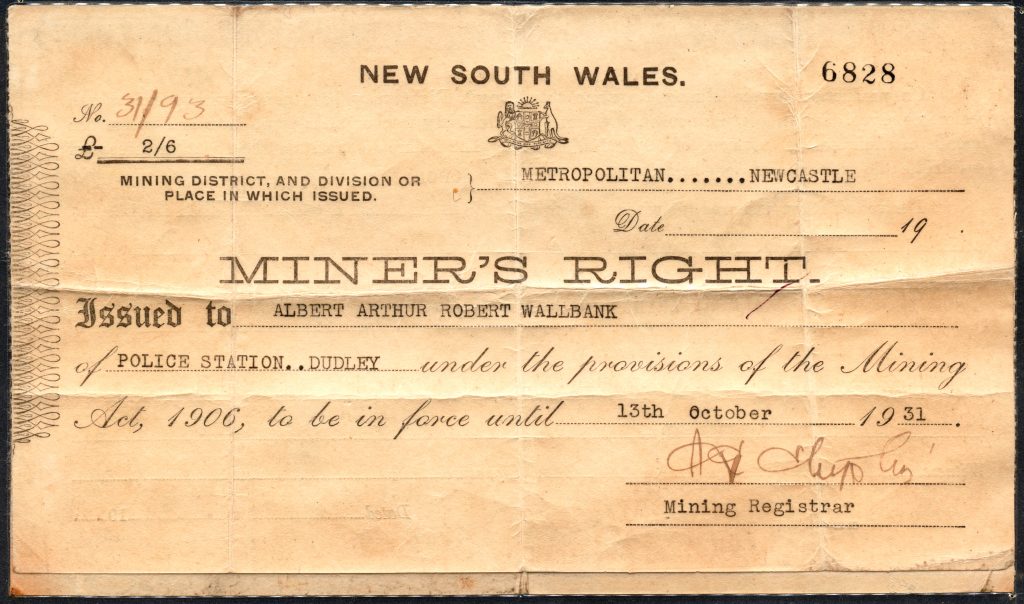 NEW SOUTH WALES.
6828
No. 31/93
£ 2/6
MINING DISTRICT, AND DIVISION OR
PLACE IN WHICH ISSUED.
} METROPOLITAN.......NEWCASTLE
Date 19 .
MINER'S RIGHT.
Issued to ALBERT ARTHUR ROBERT WALLBANK
of POLICE STATION..DUDLEY under the provisions of the Mining
Act, 1906, to be in force until 13th October 19 31 .
Mining Registrar